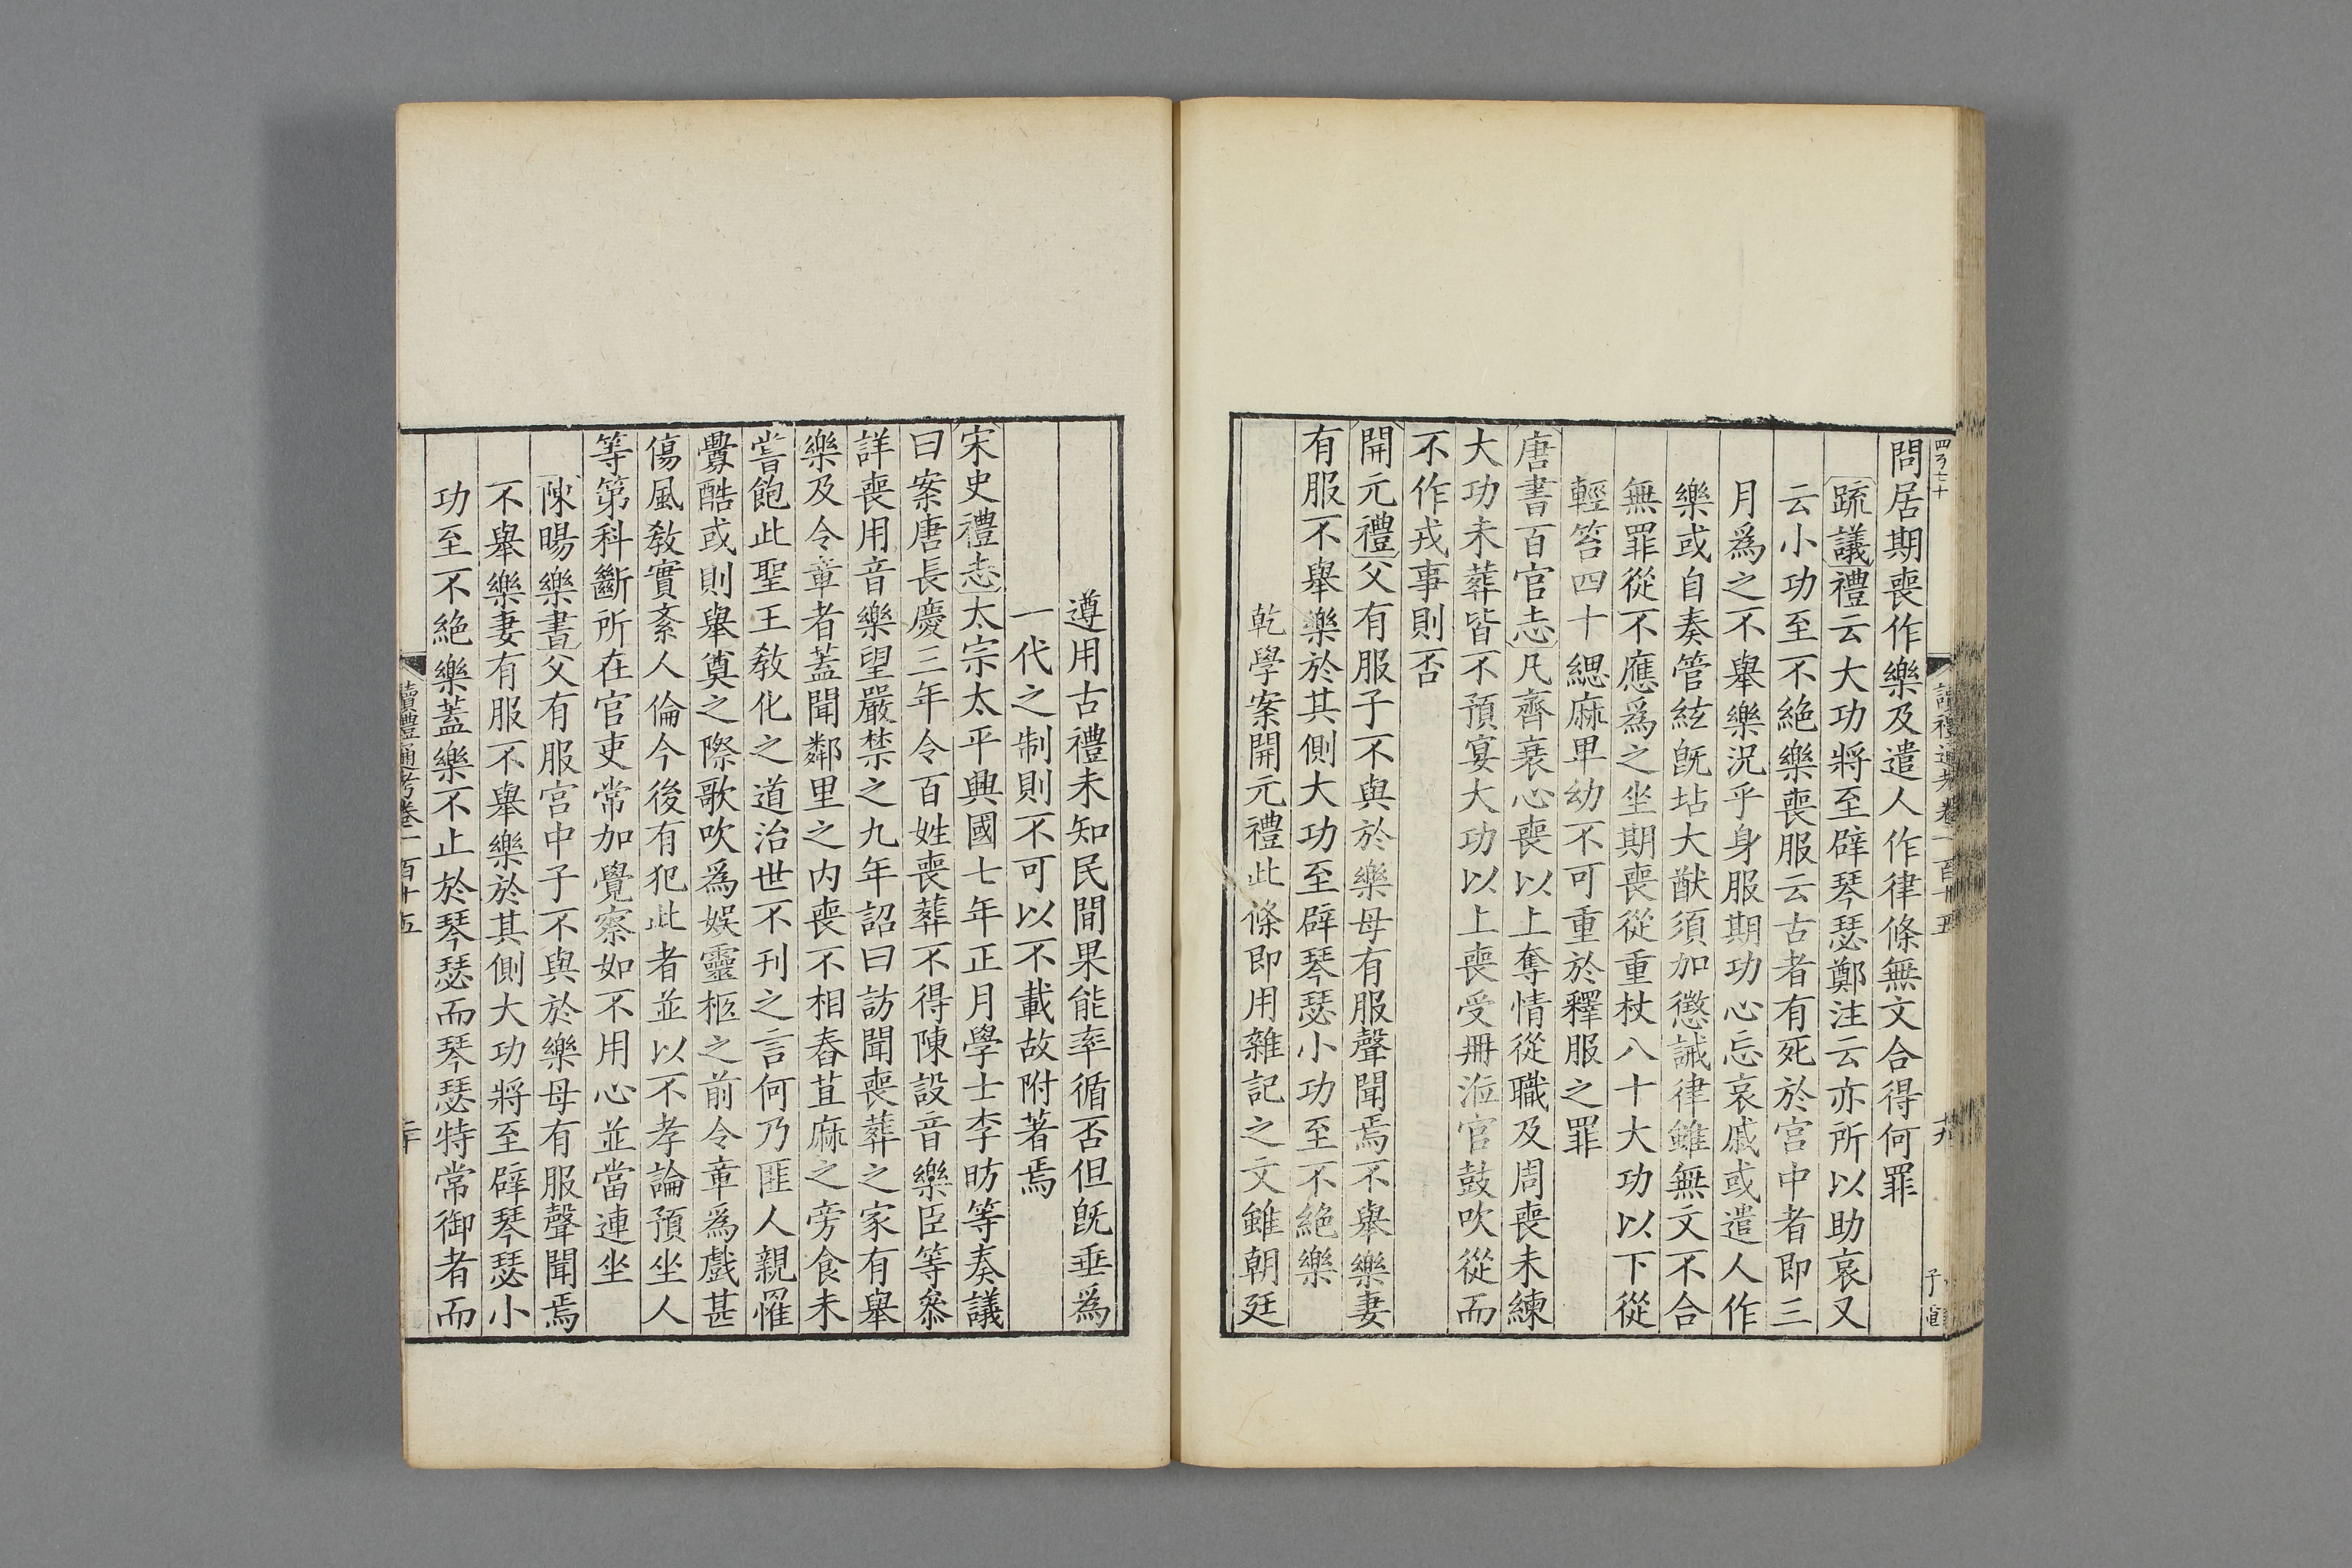 問居期喪作樂及遣人作律條無文合得何罪
疏議禮云大功將至辟琴瑟鄭注云亦所以助哀又
云小功至不絶樂喪服云古者有死於宫中者即三
月爲之不舉樂況乎身服期功心忘哀戚或遣人作
樂或自奏管絃旣玷大猷須加懲誡律雖無文不合
無罪從不應爲之坐期喪從重杖八十大功以下從
輕笞四十緦麻卑幼不可重於釋服之罪
唐書百官志凡齊衰心喪以上奪情從職及周喪未練
大功未葬皆不預宴大功以上喪受冊涖官鼓吹從而
不作戎事則否
開元禮父有服子不與於樂母有服聲聞焉不舉樂妻
有服不舉樂於其側大功至辟琴瑟小功至不絶樂
乾學案開元禮此條即用雜記之文雖朝廷
遵用古禮未知民間果能率循否但旣垂爲
一代之制則不可以不載故附著焉
宋史禮志太宗太平興國七年正月學士李昉等奏議
曰案唐長慶三年令百姓喪葬不得陳設音樂臣等叅
詳喪用音樂望嚴禁之九年詔曰訪聞喪葬之家有舉
樂及令章者蓋聞鄰里之内喪不相舂苴麻之旁食未
甞飽此聖王敎化之道治世不刊之言何乃匪人親罹
釁酷或則舉奠之際歌吹爲娱靈柩之前令章爲戲甚
傷風敎實紊人倫今後有犯此者並以不孝論預坐人
等第科斷所在官吏常加覺察如不用心並當連坐
陳暘樂書父有服宫中子不與於樂母有服聲聞焉
不舉樂妻有服不舉樂於其側大功將至辟琴瑟小
功至不絶樂蓋樂不止於琴瑟而琴瑟特常御者而
讀禮通考卷一百十五